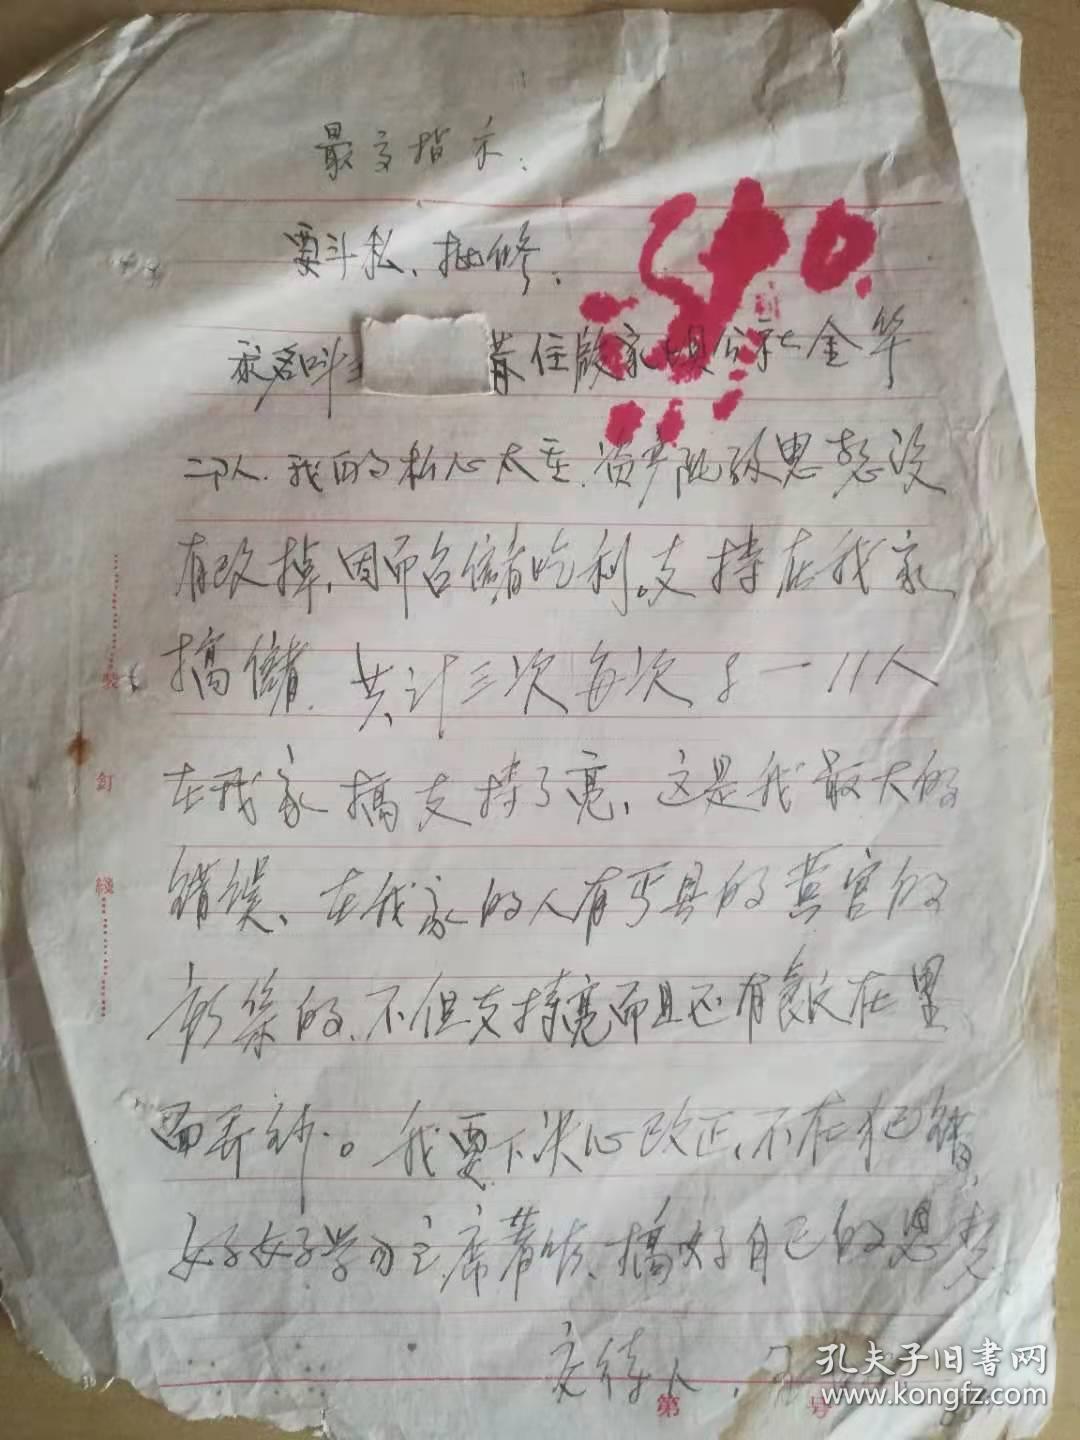 最高指示:
要斗私、批修、
我名叫 住殷家 公社金华
二队.我的私心太重.资产阶级思想没
有改掉,因而 吃利。支持在我家
搞 共计三次每次 一11人
在我家搞支持了 、这是我最大的
错误、在我家的人有 县的黄宫的
彭 的、不但支持 而且还有 在里
面弄 。我要下决心改正、不在犯错、
好好学习主席著作、搞好自己的思想
交待人、
装
訂
綫
第 号
孔夫子旧书网
www.kongfz.com